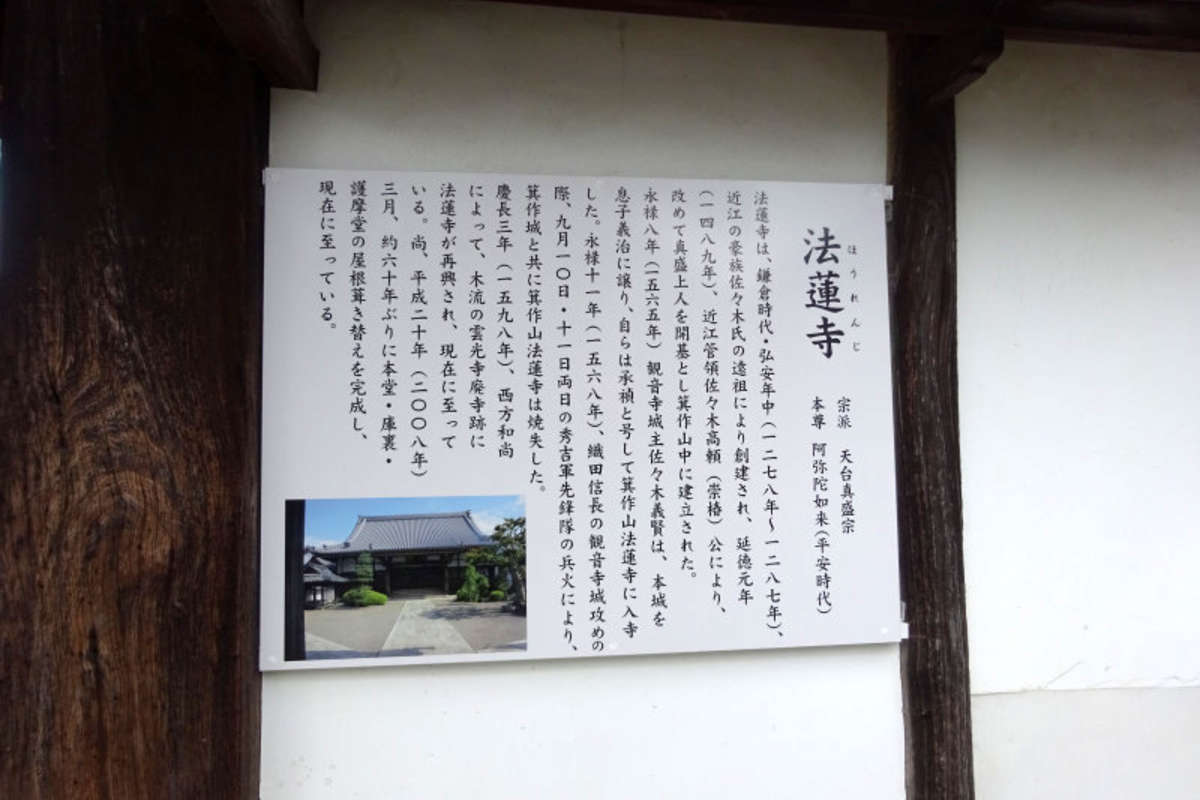 法蓮寺
ほうれんじ
宗派　天台真盛宗
本尊　阿弥陀如来（平安時代）
法蓮寺は、鎌倉時代・弘安年中（一二七八年～一二八七年）、
近江の豪族佐々木氏の遠祖により創建され、延徳元年
（一四八九年）、近江管領佐々木高頼（崇椿）公により、
改めて真盛上人を開基とし箕作山中に建立された。
永禄八年（一五六五年）観音寺城主佐々木義賢は、本城を
息子義治に譲り、自らは承禎と号して箕作山法蓮寺に入寺
した。永禄十一年（一五六八年）、織田信長の観音寺城攻めの
際、九月一〇日・十一日両日の秀吉軍先鋒隊の兵火により、
箕作城と共に箕作山法蓮寺は焼失した。
慶長三年（一五九八年）、西方和尚
によって、木流の雲光寺廃寺跡に
法蓮寺が再興され、現在に至って
いる。尚、平成二十年（二〇〇八年）
三月、約六十年ぶりに本堂・庫裏・
護摩堂の屋根葺き替えを完成し、
現在に至っている。